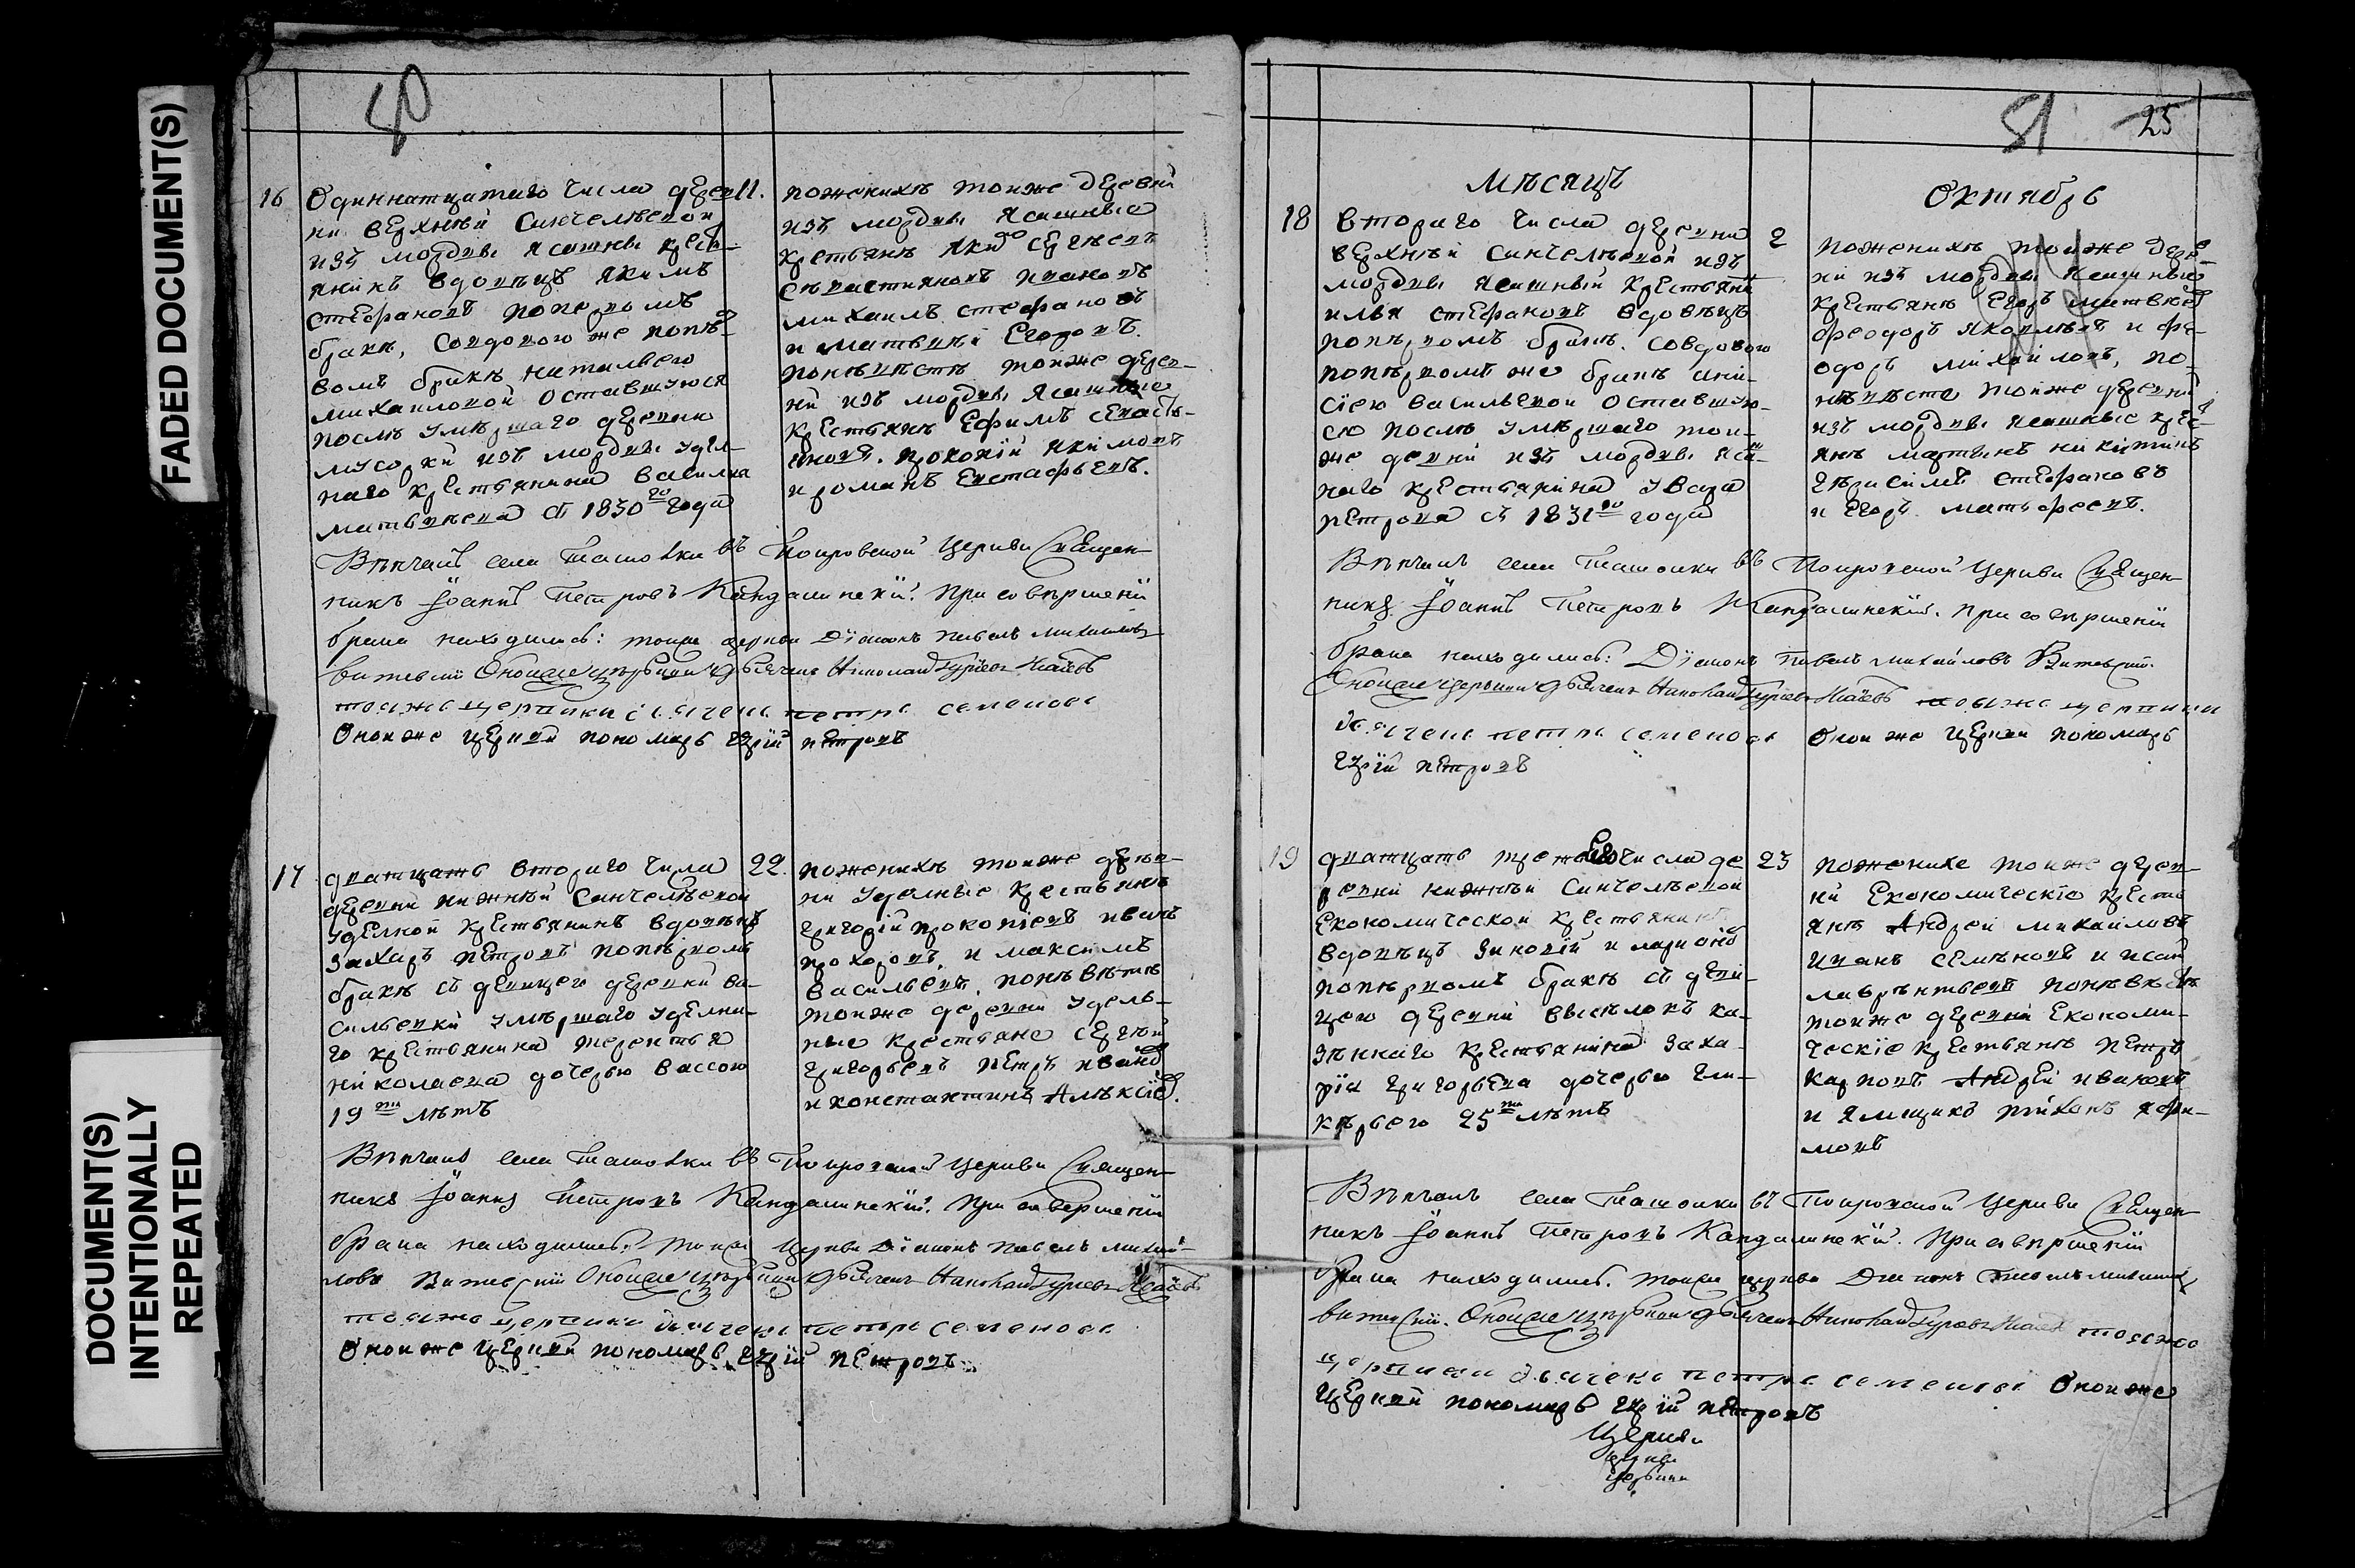 FADED DOCUMENT(S)
DOCUMENT(S)
INTENTIONALLY
REPEATED
80
16 Одиннатцатаго числа дерев 11.
ни верхней Санчелѣевой
изъ мордвы ясашны крест
янинъ вдовецъ Якимъ
Стефановъ поперьвомъ
бракѣ, совдовою же попер
вомъ бракѣ Натальею
Михаиловой оставшуюся
послѣ умершаго деревни
изъ мордвы удел
наго крестьянина Василиа
Матвѣева съ 1830го года
поженихѣ тоиже деревни
изъ мордвы ясашные
крестьянъ Сергѣевъ
Михаилъ Стефановъ
и Матвѣй Егоровъ.
поневѣстѣ тоиже дерев-
ни изъ мордвы ясашные
крестьянъ Ефимъ Севасть-
яновъ. Прокопій Якимовъ
и романъ Евстафьевъ.
Вѣнчалъ села Ташовки въ Покровской Церкви Священ-
никъ Іоаннъ Петровъ Кандалинскій. При совершеніи
брака находились: тоиже церкви Діаконъ Павелъ Михаиловъ
витевскій Оноиже церкви дьячекъ Николай Гурьевъ
тояже церкви дьячекъ петръ семеновъ
Оноиже церкви пономарь петровъ
17 дватцать втораго числа 22.
деревни нижней Санчелѣевой
уделной крестьянинъ вдовецъ
Захаръ петровъ поперьвомъ
бракѣ съ девицею деревни ва-
сильевки умершаго уделна-
го крестьянина терентья
николаева дочерью вассою
19ти лѣтъ
поженихѣ тоиже дерев-
ни уделные крестьянъ
григорій прокопіевъ иванъ
прохоровъ, и максимъ
васильевъ, поневѣстѣ
тоиже деревни удель-
ные крестьяне сергѣй
григорьевъ петръ ивановъ
и константинъ Алексѣевъ.
Вѣнчалъ села Ташовки въ Покровской Церкви Священ-
никъ Іоаннъ Петровъ Кандалинскій. При совершеніи
брака находились: тоиже Церкви Діаконъ Павелъ Михаи-
ловъ Витевскій Оноиже церкви дьячекъ Николай Гурьевъ
тояже церкви дьячекъ петръ семеновъ
Оноиже церкви пономарь петровъ
81 25
мѣсяцъ Октябрь
18 втораго числа деревни 2
верхней санчелѣевой изъ
мордвы ясашный крестьянинъ
илья стефановъ вдовецъ
поперьвомъ бракѣ. совдовою
поперьвомъ же бракѣ ани-
сіею васильевой оставшую-
ся послѣ умершаго тои-
же девни изъ мордвы ясаш-
наго крестьянина увара
петрова съ 1831го года
поженихѣ тоиже дерев-
ни изъ мордвы ясашные
крестьянъ Егоръ матвѣевъ
феодоръ яковлевъ и фе-
одоръ михайловъ, по-
невѣсте тоиже деревни
изъ мордвы ясашные крес-
янъ мартынъ никитинъ
герасимъ стефановъ
и Егоръ матьфеевъ.
Вѣнчалъ села Ташовки въ Покровской Церкви Священ-
никъ Іоаннъ Петровъ Кандалинскій. При совершеніи
брака находились: Діаконъ Павелъ михайловъ Витевскій.
Оноиже Церкви дьячекъ Николай Гурьевъ тояже церкви
дьячекъ петръ семеновъ Оноиже церкви пономарь
петровъ
19 дватцать третьего числа де 23
ревни нижней Санчелѣевой
Економической крестьянинъ
вдовецъ Зиновій иларионовъ
поперьвомъ бракѣ съ деви-
цею деревни выселокъ ка-
зеннаго крестьянина Заха-
рія григорьева дочерью гли-
керьею 25ти лѣтъ
поженихе тоиже дерев-
ни Економическіе кресть
янъ Андрей михаиловъ
иванъ семѣновъ и исай
лаврентьевъ поневѣстѣ
тоиже деревни Економи-
ческіе крестьянъ петръ
карповъ Андрей ивановъ
и Ямщикъ тихонъ Ефи-
мовъ
Вѣнчалъ села Ташовки въ Покровской Церкви Священ-
никъ Іоаннъ Петровъ Кандалинскій. При совершеніи
брака находились. тоиже церкви Діаконъ Павелъ михаиловъ
витевскій. Оноиже церкви дьячекъ Николай Гурьевъ тояже
церкви дьячекъ петръ семеновъ Оноиже
церкви пономарь петровъ
Церкви
церкви
церкви